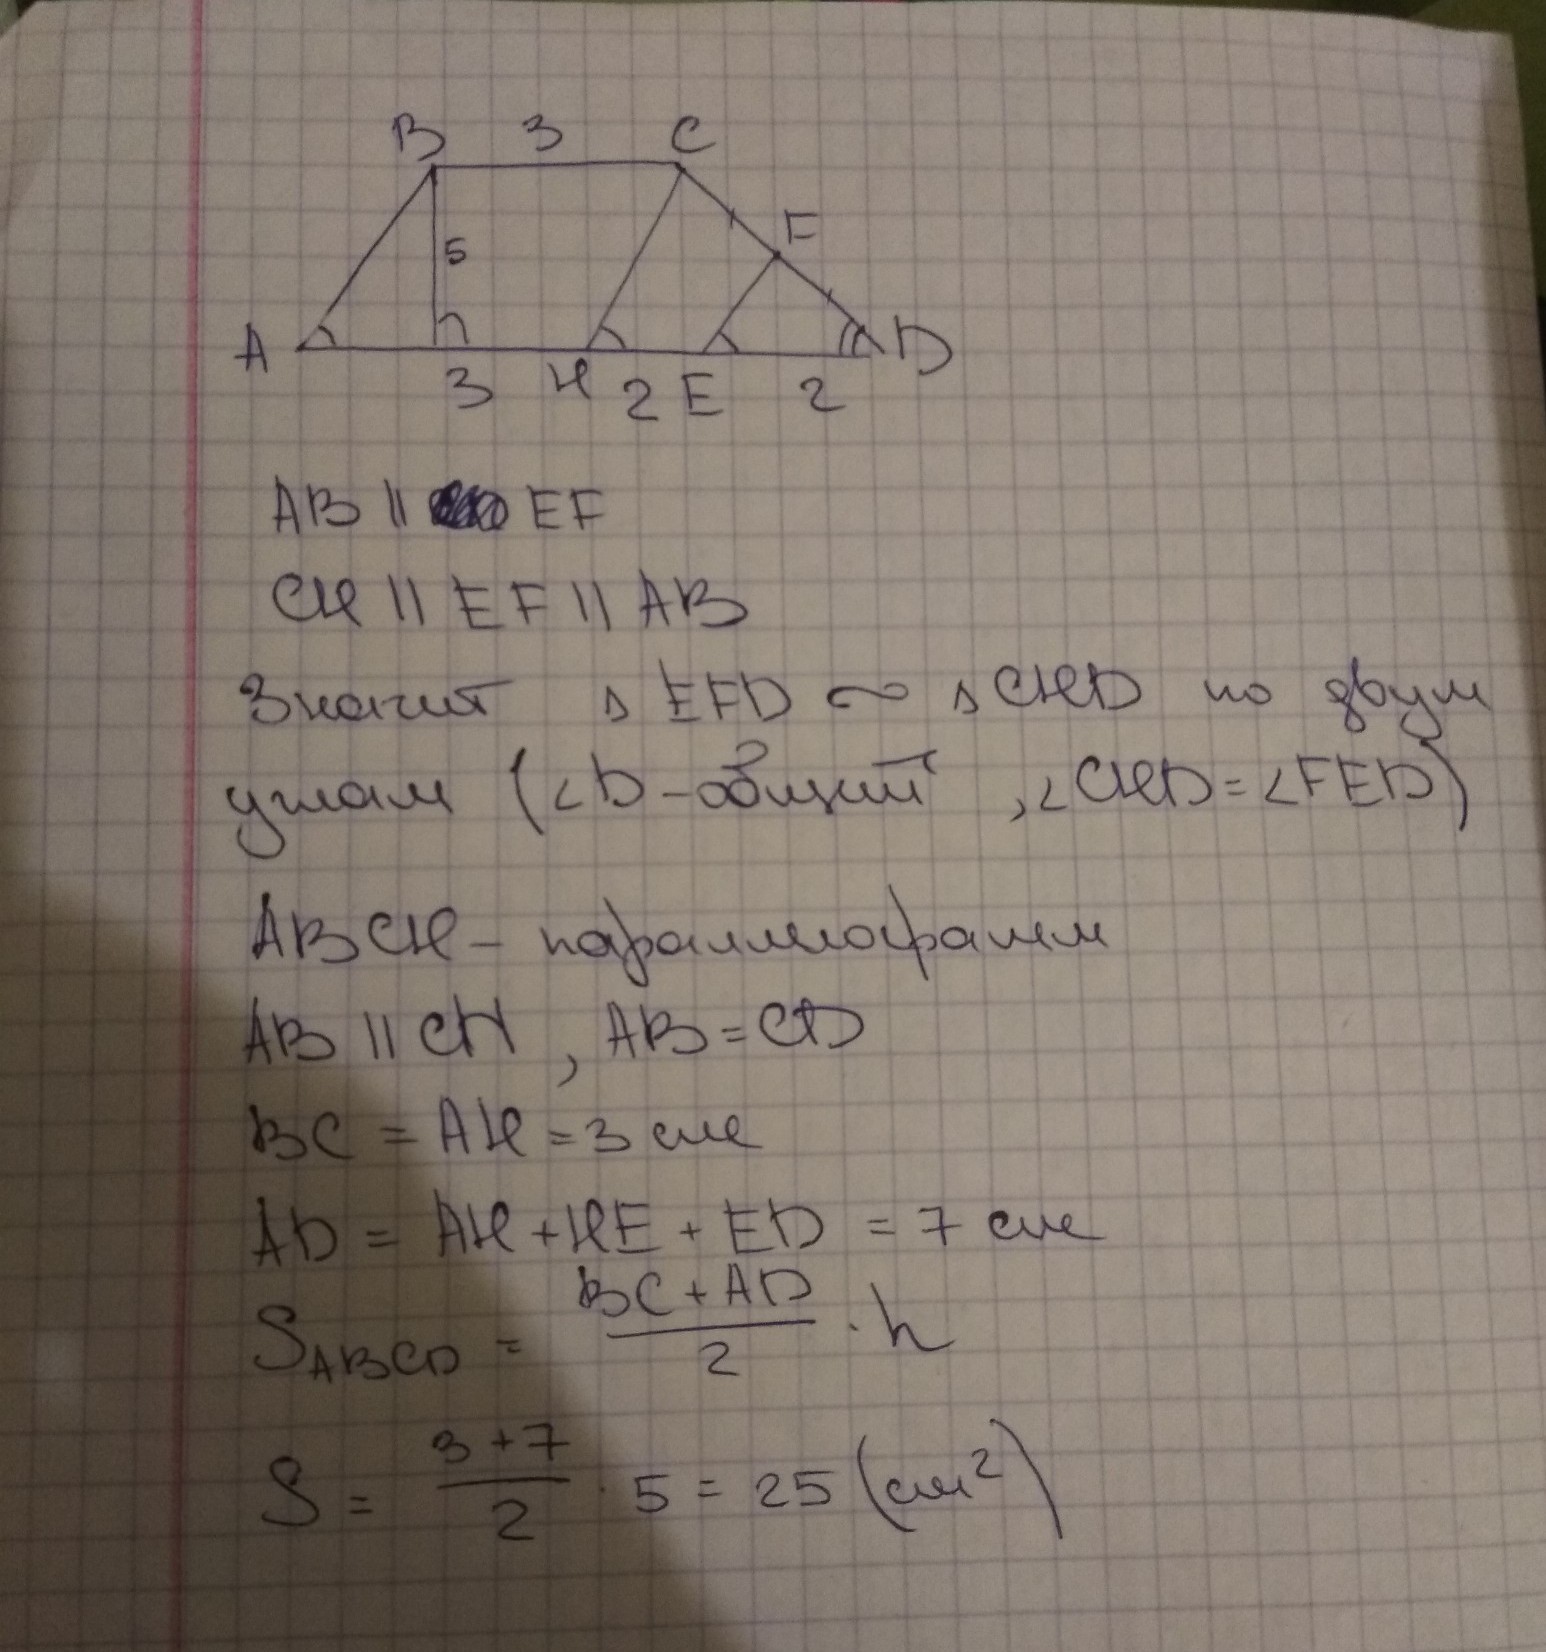 B 3 C
5 F
A D
3 H 2 E 2
AB || EF
CH || EF || AB
Значит △ EFD ∾ △ CHD по двум
углам (∠D - общий, ∠CHD = ∠FED)
ABCH - параллелограмм
AB || CH, AB = CD
BC = AH = 3 см
AD = AH + HE + ED = 7 см
S_ABCD = (BC + AD)/2 · h
S = (3 + 7)/2 · 5 = 25 (см²)